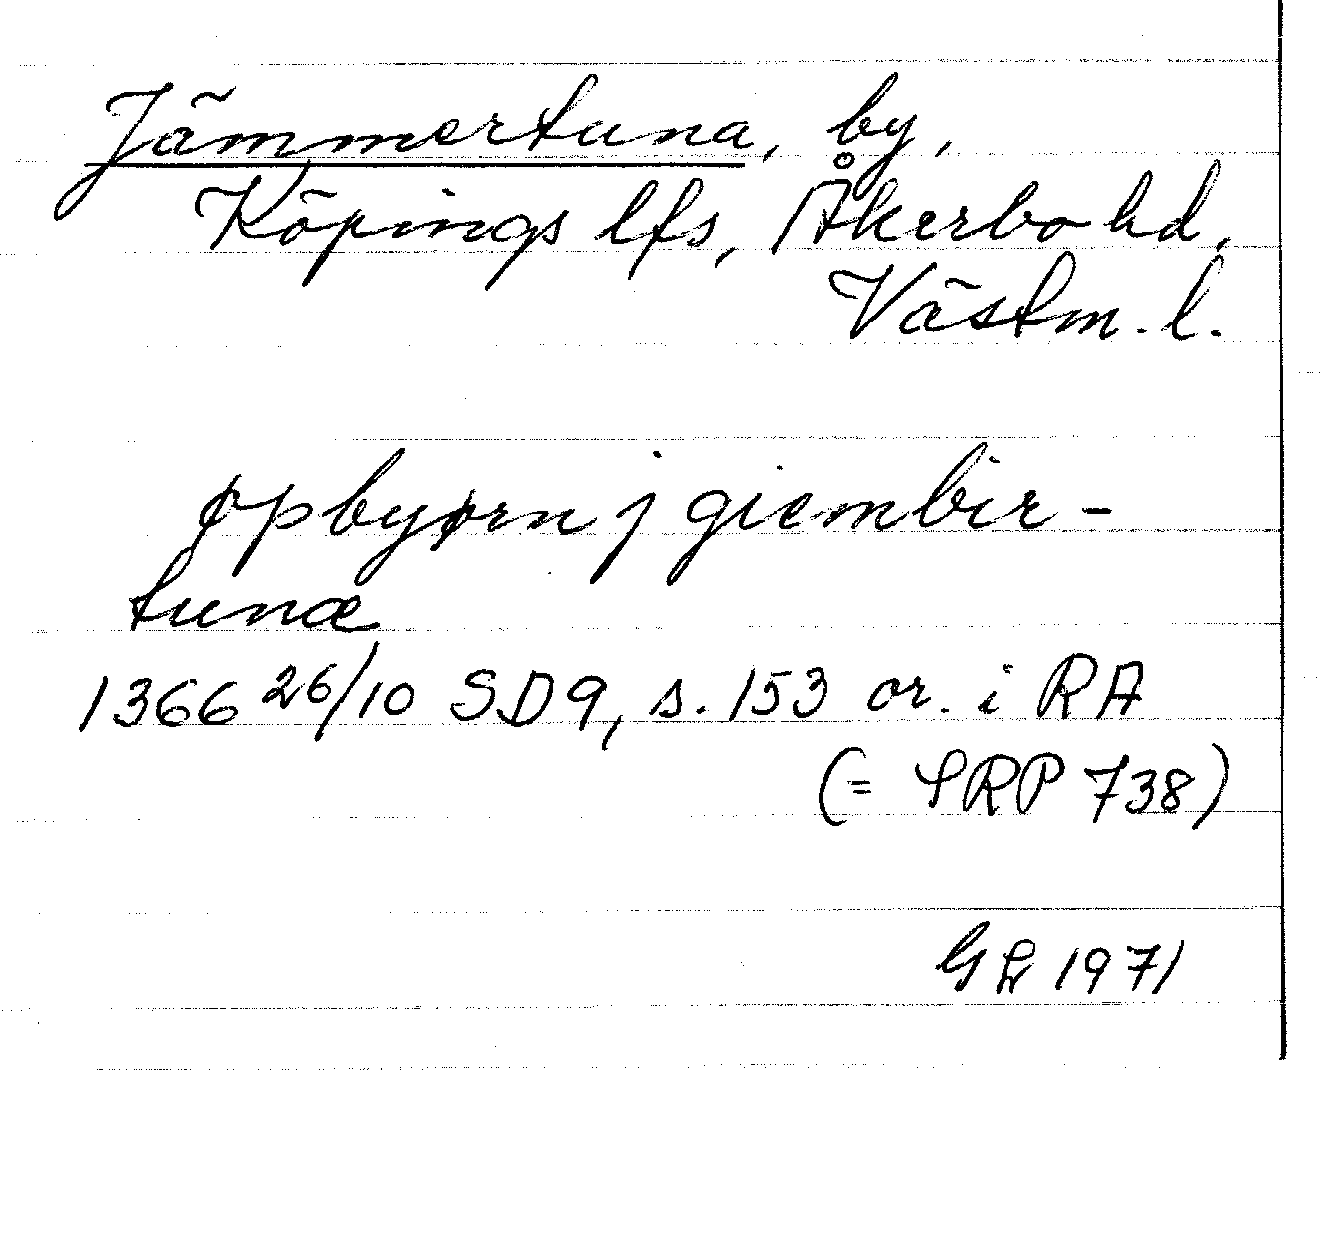 Jämmertuna, by,
Köpings lfs, Åkerbo hd,
Västm. l.
øpbyørn j giembir-
tunæ
1366 26/10 SD9, s. 153 or. i RA
(= SRP 738)
GL 1971